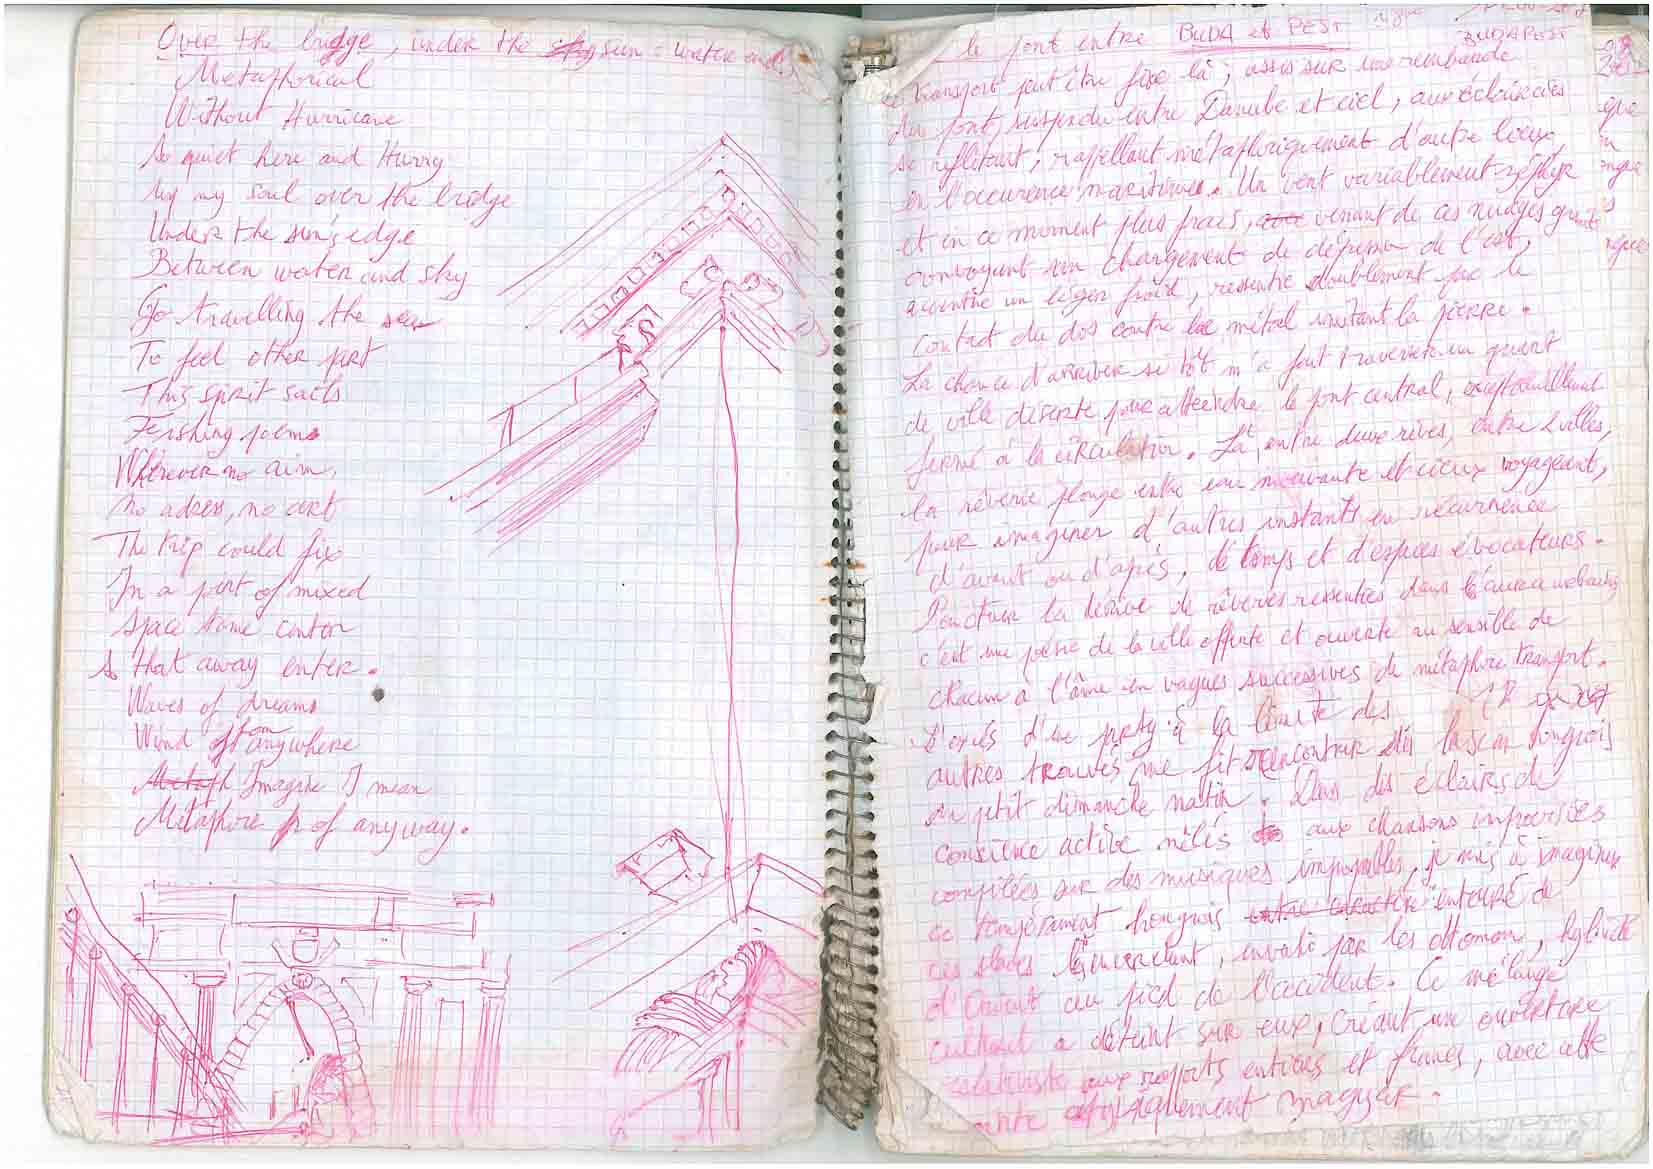 Over the bridge, under the sun: water and
Metaphorical
Without Hurricane
So quiet here and Hurry
my soul over the bridge
Under the sun's edge
Between water and sky
Go travelling the sea
To feel other part
This spirit sails
Fershing poems
Wherever no aim,
No adress, no art
The trip could fix
In a point of mixed
Space time
that away enter.
Waves of dreams
Wind from anywhere
Imagine I mean
Metaphore of anyway.
le pont entre BUDA et PEST
BUDAPEST
transport peut être fixe là, assis sur une rembarde
du pont, suspendu entre Danube et ciel, aux éclaircies
se reflétant, rappellant métaphoriquement d'autre lieux,
en l'occurence maritimes. Un vent variablement zéphyr
et en ce moment plus frais, venant de ces nuages gris
convoyant un chargement de dépression de l'est,
accentue un léger froid, ressentie doublement par le
contact du dos contre le métal imitant la pierre.
La chance d'arriver si tôt m'a fait traverser un quart
de ville déserte pour atteindre le pont central, exceptionellement
fermé à la circulation. Là, entre deux rives, entre 2 villes,
la rêverie plonge entre eau mouvante et cieux voyageant,
pour imaginer d'autres instants en récurrence
d'avant ou d'après, de temps et d'espaces évocateurs.
Ponctuer la dérive de rêveries ressenties dans
c'est une poésie de la ville offerte et ouverte au sensible de
chacun à l'âme en vagues successives de métaphore transport.
d'une party à la limite des
autres trouvés me fit rencontrer dès hongrois
un petit dimanche matin. Dans des éclairs de
conscience active mêlés aux chansons improvisées
compilées sur des musiques improbables, je mis à imaginer
ce tempérament hongrois entouré de
ces slaves envahi par les ottoman,
d'Orient au pied de l'occident. Ce mélange
culturel a déteint sur eux, créant une ouverture
relativiste aux rapports entiers et francs, avec cette
typiquement magyar.